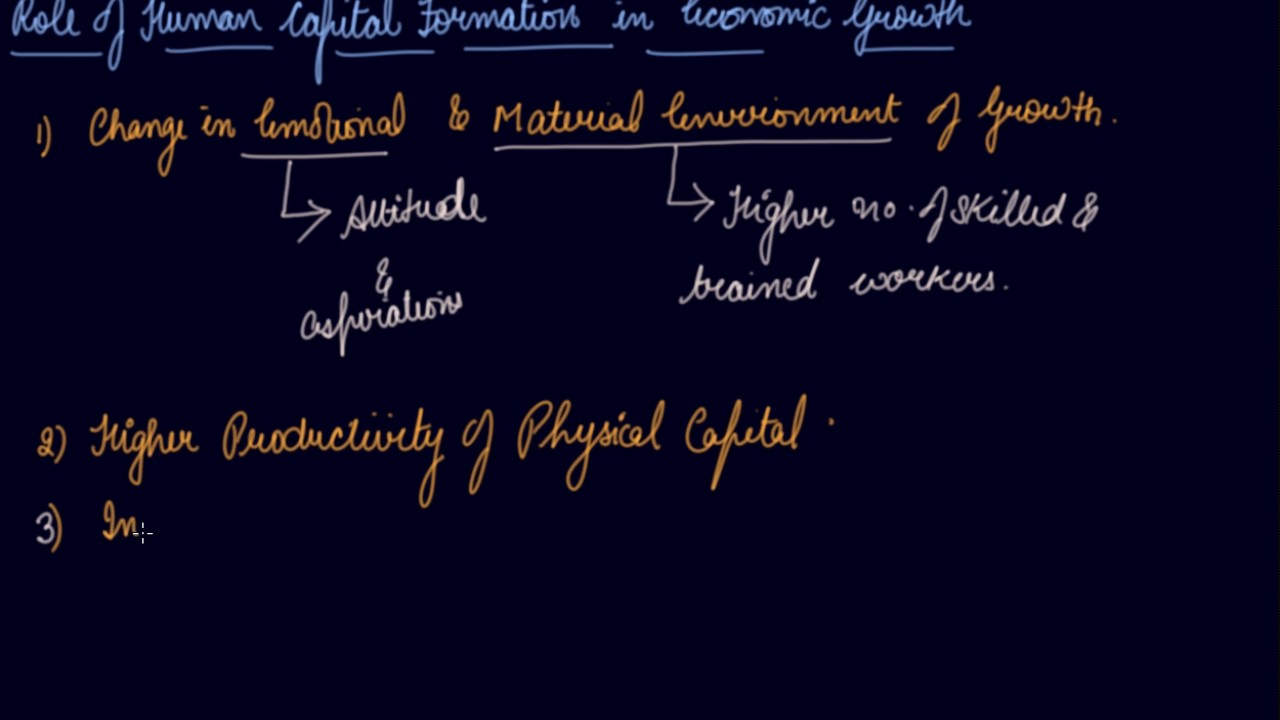 Role of Human Capital Formation in Economic Growth
1) Change in Emotional & Material Environment of Growth.
Attitude
&
aspirations
Higher no. of skilled &
trained workers.
2) Higher Productivity of Physical Capital.
3) In